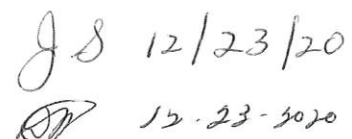 J.S 12/23/20
12-23-2020